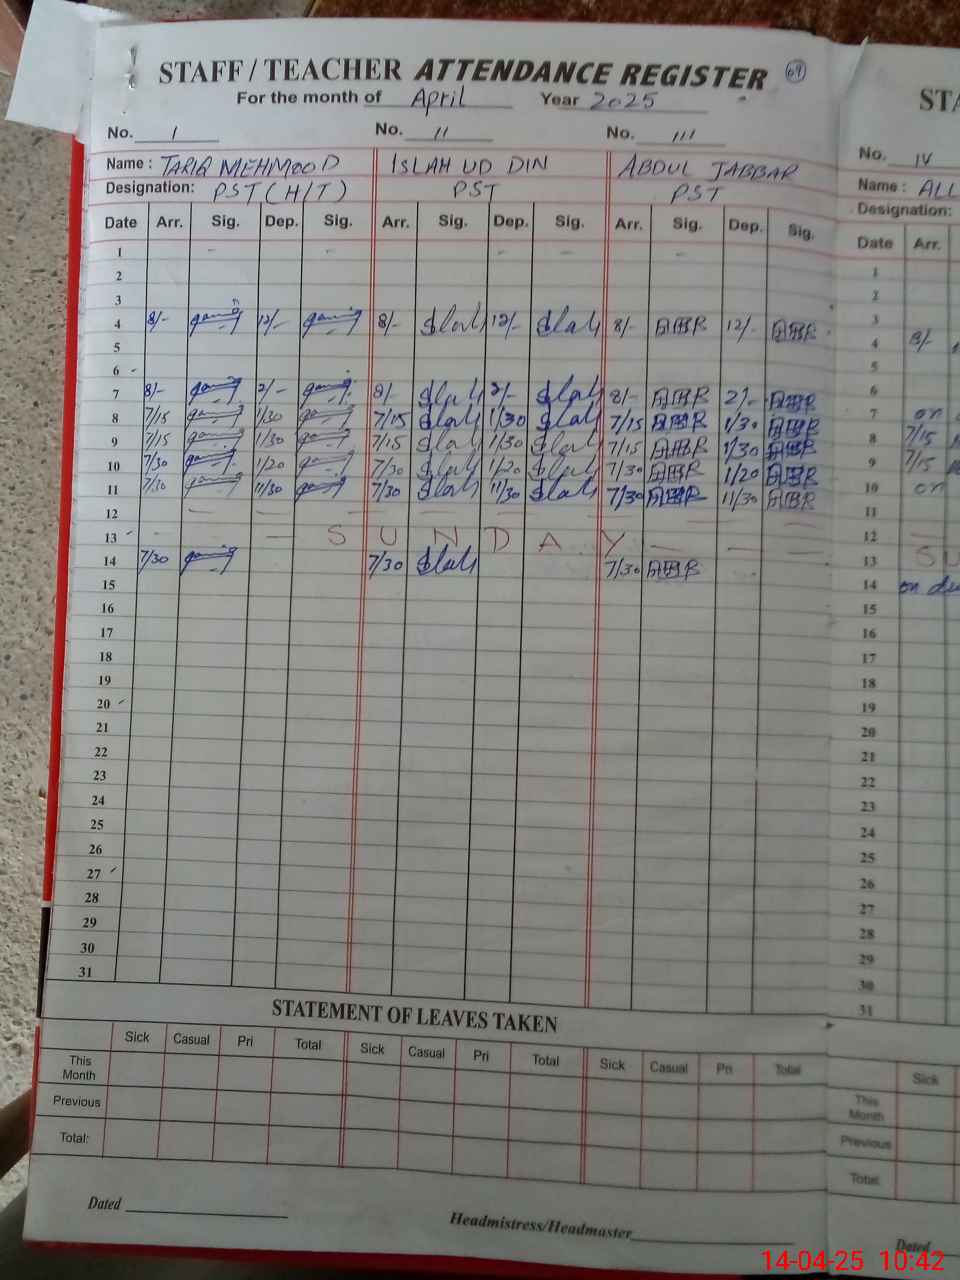 STAFF / TEACHER ATTENDANCE REGISTER 69
For the month of April Year 2025
No. I No. II No. III
Name : TARIQ MEHMOOD ISLAH UD DIN ABDUL JABBAR
Designation: PST (H/T) PST PST
Date Arr. Sig. Dep. Sig. Arr. Sig. Dep. Sig. Arr. Sig. Dep. Sig.
1
2
3
4 8/- 12/- 8/- Islah 12/- Islah 8/- 12/-
5
6
7 8/- 2/- 8/- Islah 2/- Islah 8/- 2/-
8 7/15 1/30 7/15 Islah 1/30 Islah 7/15 1/30
9 7/15 1/30 7/15 Islah 1/30 Islah 7/15 1/30
10 7/30 1/20 7/30 Islah 1/20 Islah 7/30 1/20
11 7/30 11/30 7/30 Islah 11/30 Islah 7/30 11/30
12
13 SUNDAY
14 7/30 7/30 Islah 7/30
15
16
17
18
19
20
21
22
23
24
25
26
27
28
29
30
31
STATEMENT OF LEAVES TAKEN
Sick Casual Pri Total Sick Casual Pri Total Sick Casual Pri Total
This Month
Previous
Total:
Dated
Headmistress/Headmaster
STA
No. IV
Name : ALL
Designation:
Date Arr.
1
2
3
4 8/-
5
6
7 on
8 7/15
9 7/15
10 on
11
12
13 SU
14 on
15
16
17
18
19
20
21
22
23
24
25
26
27
28
29
30
31
Sick
This Month
Previous
Total
Dated
14-04-25 10:42